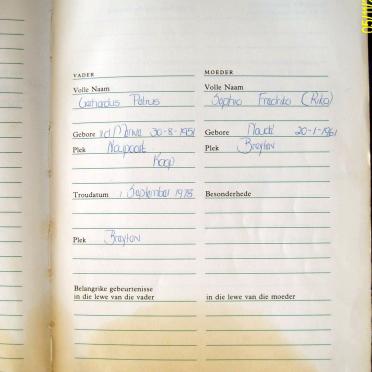 VADER
Volle Naam
Gerhardus Petrus
Gebore v/d Merwe 30-8-1951
Plek Noupoort
Kaap
Troudatum 1 September 1978
Plek Breyten
Belangrike gebeurtenisse
in die lewe van die vader
MOEDER
Volle Naam
Sophia (Rika)
Gebore Naudé 20-1-1961
Plek Breyten
Besonderhede
in die lewe van die moeder